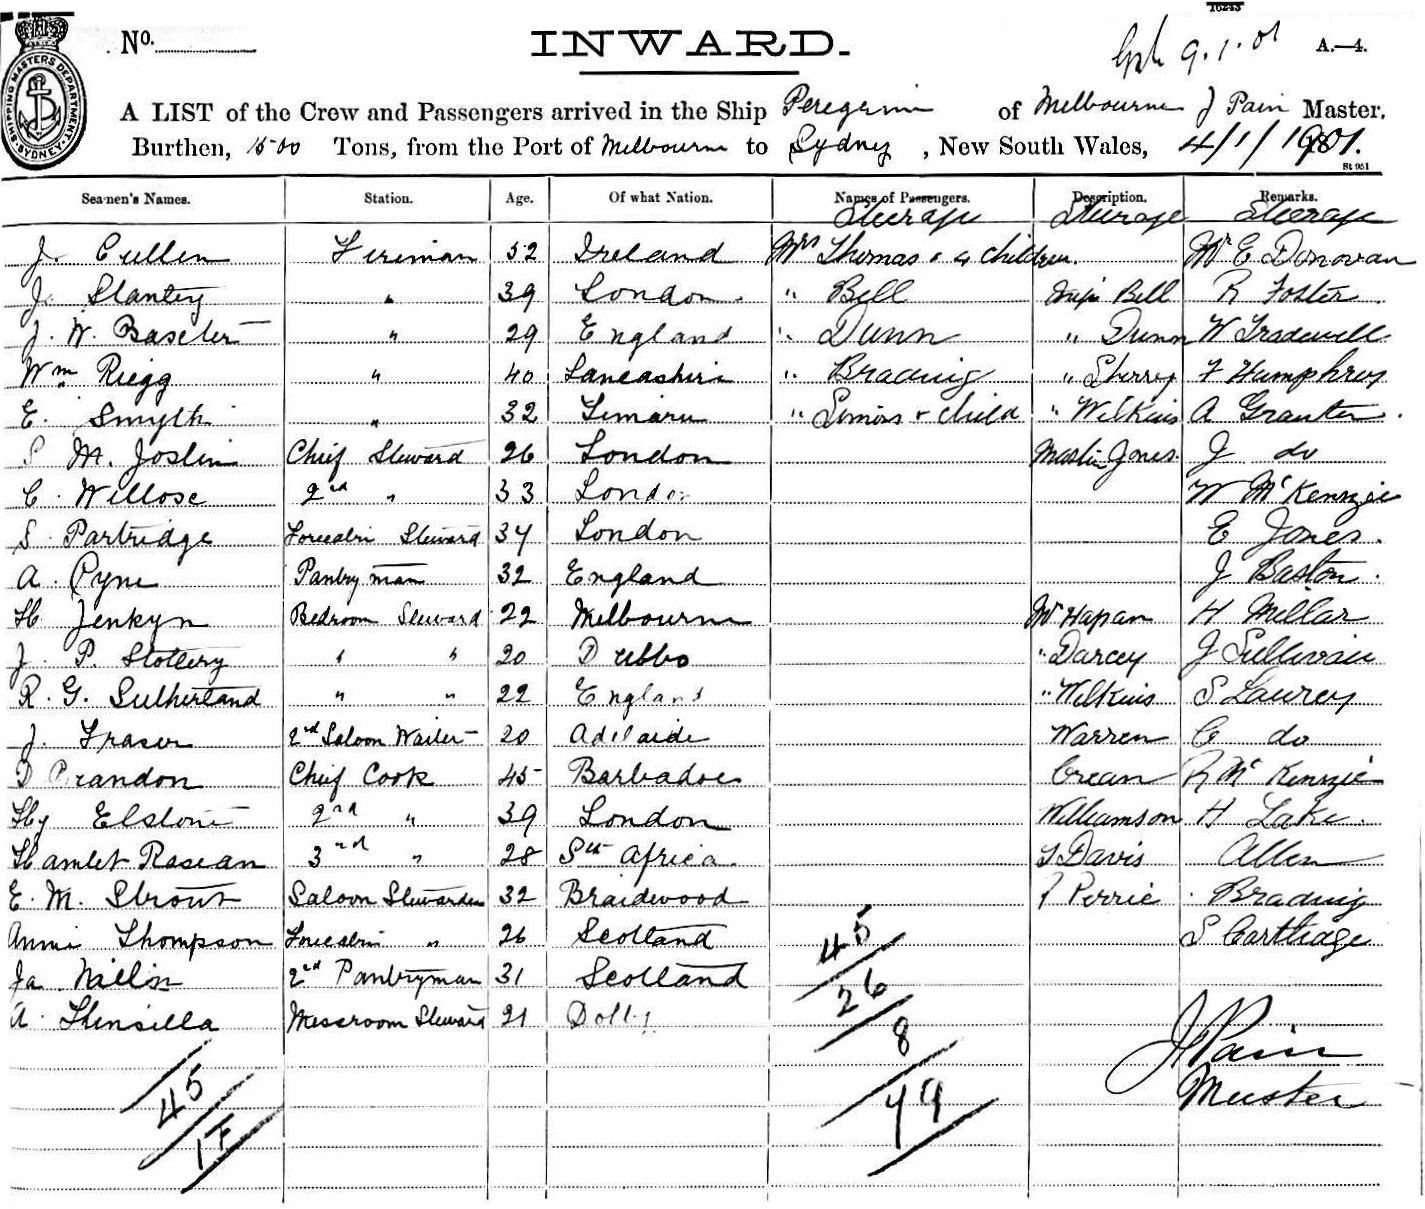 10243
No.
INWARD.
9.1.01
A.—4.
SHIPPING MASTERS DEPARTMENT SYDNEY
A LIST of the Crew and Passengers arrived in the Ship Peregrine of Melbourne J Pain Master,
Burthen, 1500 Tons, from the Port of Melbourne to Sydney, New South Wales, 4/1/1901.
St 951
Seamen's Names. Station. Age. Of what Nation. Names of Passengers. Description. Remarks.
Steerage Steerage Steerage
J. Cullen Fireman 52 Ireland Mrs Thomas & 4 children. Mr E Donovan
J. Stanley " 39 London. " Bell Miss Bell R Foster.
J. W. Baseler " 29 England " Dunn " Dunn W Tradewell
Wm Riegg " 40 Lancashire " Brading " Sherrey F Humphrey
E. Smyth " 32 Timaru " Simons & child " Wilkins A Granter.
S M. Joslin Chief Steward 26 London Master Jones. J do
C. Willose 2nd " 33 London W McKenzie
S. Partridge Forecabin Steward 34 London E Jones.
A. Pyne Pantryman 32 England J Baston.
H. Jenkyn Bedroom Steward 22 Melbourne Mr Hapan H Millar
J. P. Stottery " " 20 Dubbo " Darcey J Sullivan
R. G. Sutherland " " 22 England " Wilkins S Laurey
J. Fraser 2nd Saloon Waiter 20 Adelaide Warren C do
D Brandon Chief Cook 45 Barbadoes Crean R McKenzie
Hy Elstone 2nd " 39 London Williamson H Lake.
Hamlet Rasean 3rd " 28 Sth Africa. T Davis Allen
E. M. Strout Saloon Stewardess 32 Braidwood Perrie Brading
Annie Thompson Forecabin " 26 Scotland S Carthage
Ja. Nillin 2nd Pantryman 31 Scotland
A. Thinsilla Messroom Steward 21
45
26
8
79
45
17
J Pain
Master